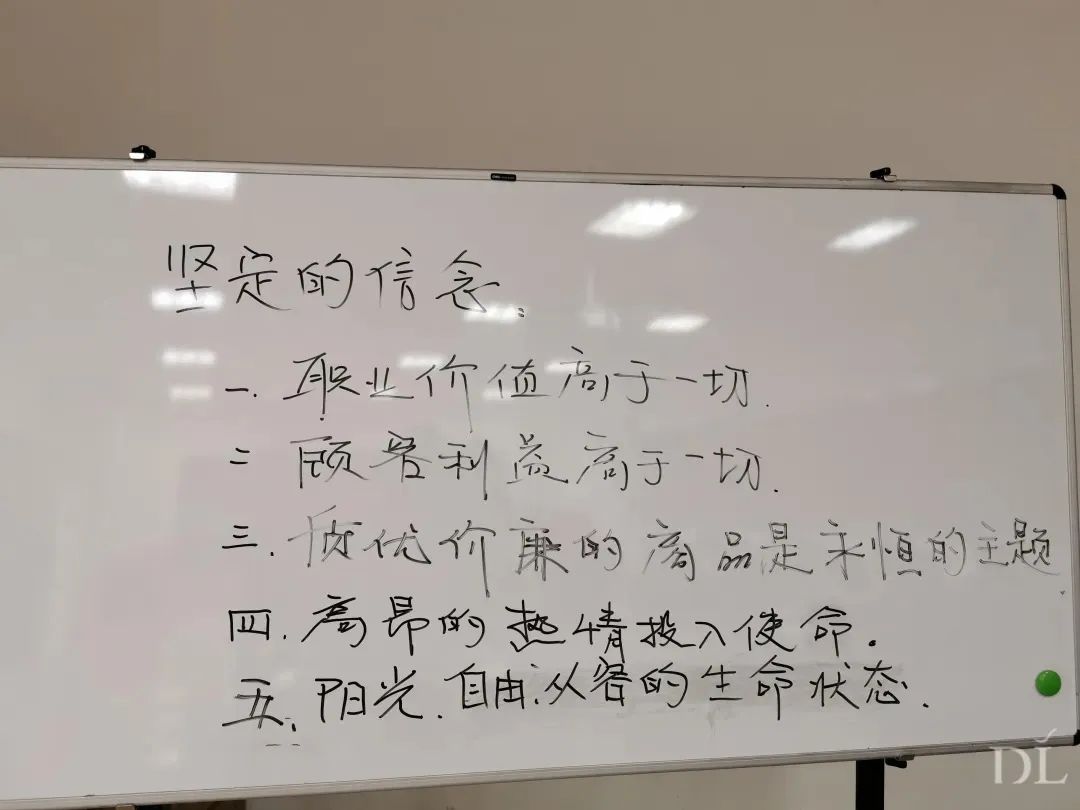 坚定的信念.
一. 职业价值高于一切.
二 顾客利益高于一切.
三. 质优价廉的商品是永恒的主题
四. 高昂的热情投入使命.
五. 阳光.自由.从容的生命状态.
DL